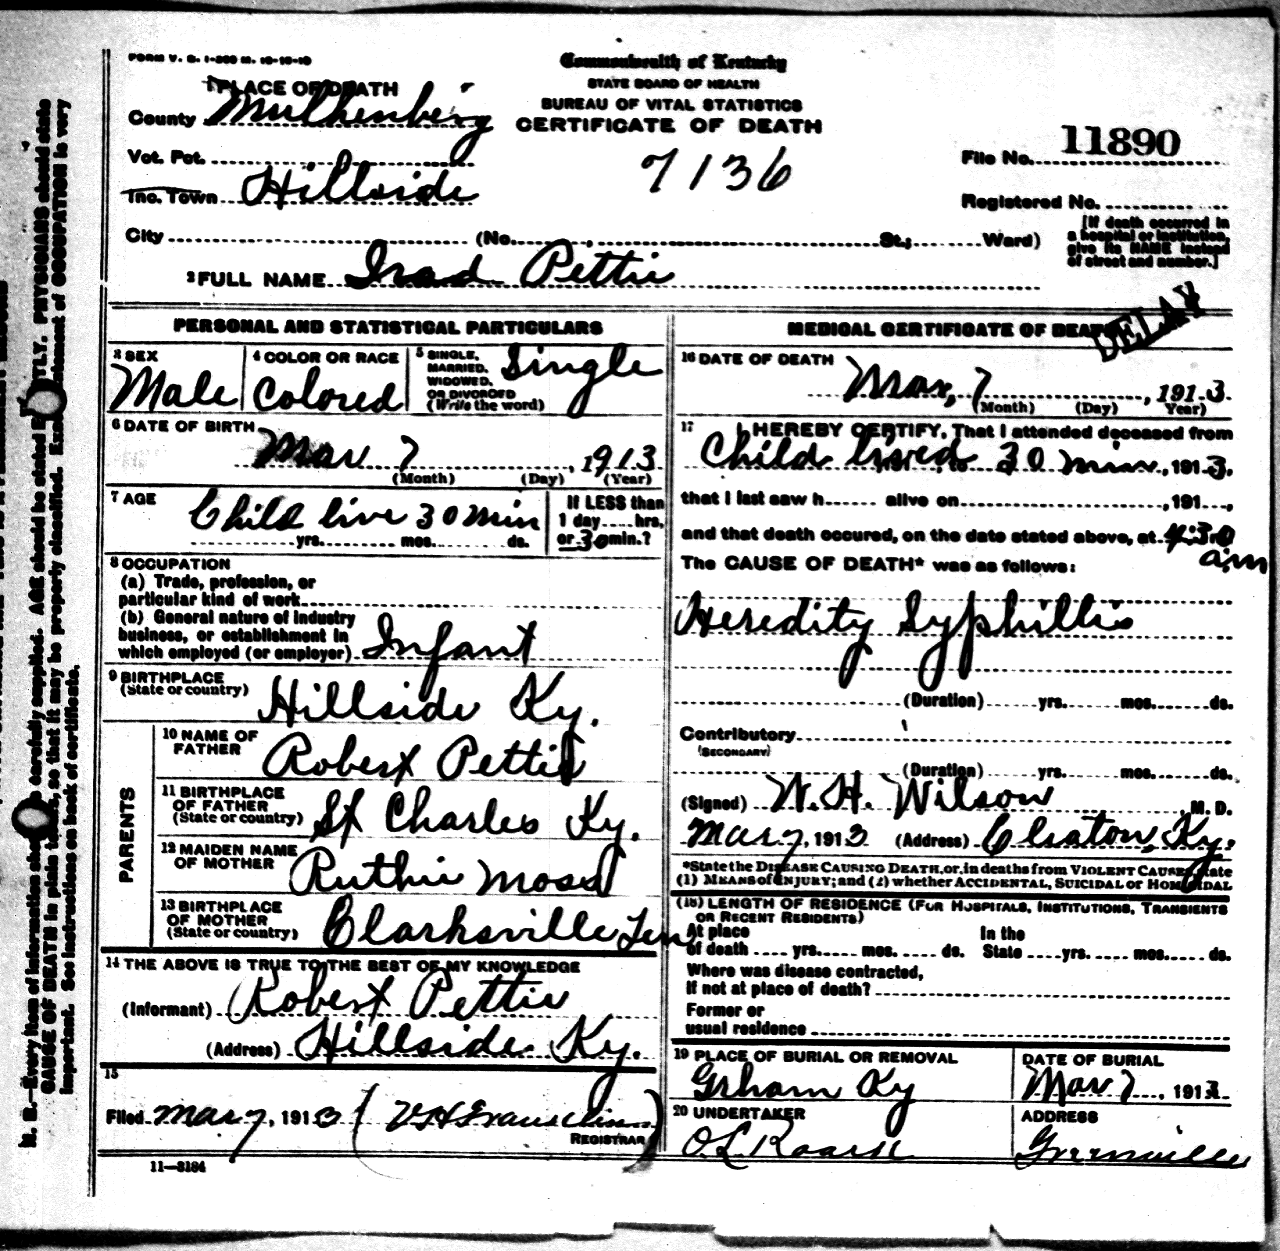 FORM V. S. 1-300 M. 10-10-10
Commonwealth of Kentucky
STATE BOARD OF HEALTH
BUREAU OF VITAL STATISTICS
CERTIFICATE OF DEATH
1 PLACE OF DEATH
County Muhlenberg
Vot. Pct.
Inc. Town Hillside
7136
File No. 11890
Registered No.
City (No. , St.; Ward)
[If death occurred in
a hospital or institution,
give its NAME instead
of street and number.]
2 FULL NAME Irad Pettie
DELAY
PERSONAL AND STATISTICAL PARTICULARS
3 SEX
Male
4 COLOR OR RACE
Colored
5 SINGLE,
MARRIED,
WIDOWED,
OR DIVORCED
(Write the word)
Single
6 DATE OF BIRTH
Mar 7, 1913
(Month) (Day) (Year)
7 AGE
Child live 30 Min
yrs. mos. ds.
If LESS than
1 day hrs.
or 30 min.?
8 OCCUPATION
(a) Trade, profession, or
particular kind of work
(b) General nature of industry
business, or establishment in
which employed (or employer) Infant
9 BIRTHPLACE
(State or country)
Hillside Ky.
PARENTS
10 NAME OF
FATHER
Robert Pettie
11 BIRTHPLACE
OF FATHER
(State or country)
St Charles Ky.
12 MAIDEN NAME
OF MOTHER
Ruthie Moss
13 BIRTHPLACE
OF MOTHER
(State or country)
Clarksville Ten
14 THE ABOVE IS TRUE TO THE BEST OF MY KNOWLEDGE
(Informant) Robert Pettie
(Address) Hillside Ky.
15
Filed Mar 7, 1913
REGISTRAR
11—3184
MEDICAL CERTIFICATE OF DEATH
16 DATE OF DEATH
Mar, 7, 1913
(Month) (Day) (Year)
17 I HEREBY CERTIFY, That I attended deceased from
Child lived 30 min, 1913,
that I last saw h alive on , 191 ,
and that death occured, on the date stated above, at 4:30
am
The CAUSE OF DEATH* was as follows:
Heredity Syphillis
(Duration) yrs. mos. ds.
Contributory
(SECONDARY)
(Duration) yrs. mos. ds.
(Signed) W. H. Wilson, M. D.
Mar 7, 1913 (Address) Cleaton, Ky.
*State the DISEASE CAUSING DEATH, or, in deaths from VIOLENT CAUSES, state
(1) MEANS of INJURY; and (2) whether ACCIDENTAL, SUICIDAL or HOMICIDAL
(18) LENGTH OF RESIDENCE (FOR HOSPITALS, INSTITUTIONS, TRANSIENTS
OR RECENT RESIDENTS)
At place
of death yrs. mos. ds.
In the
State yrs. mos. ds.
Where was disease contracted,
If not at place of death?
Former or
usual residence
19 PLACE OF BURIAL OR REMOVAL
Grham Ky
DATE OF BURIAL
Mar 7, 1913
20 UNDERTAKER
ADDRESS
Greenville
N. B.—Every item of information should be carefully supplied. AGE should be stated EXACTLY. PHYSICIANS should state
CAUSE OF DEATH in plain terms, so that it may be properly classified. Exact statement of OCCUPATION is very
important. See instructions on back of certificate.